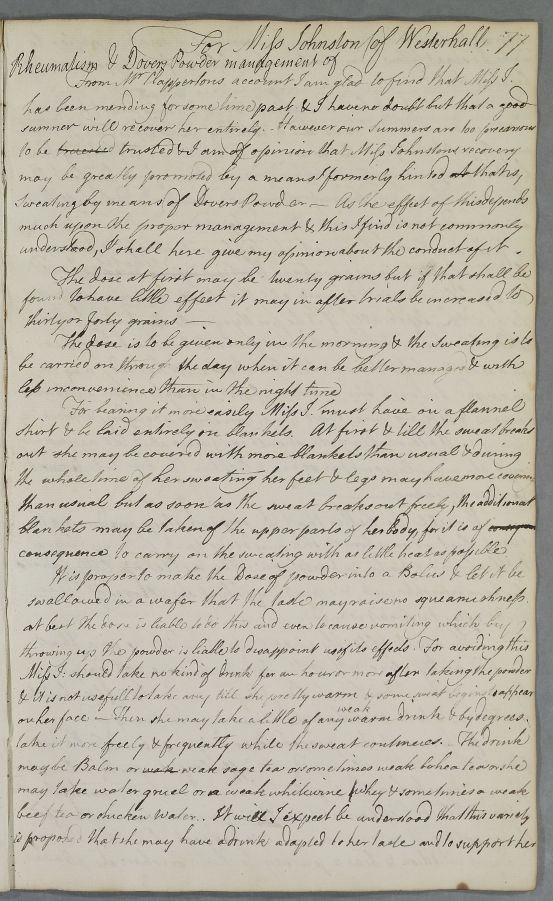 For Miss Johnston (of Westerhall 77
Rheumatism & Dovers Powder management of
From Mr Clappertons account I am glad to find that Miss J.
has been mending for some time past & I have no doubt but that a good
summer will recover her entirely. However our Summers are too precarious
to be trusted trusted & I am of opinion that Miss Johnstons recovery
may be greatly promoted by a means I formerly hinted at that is,
Sweating by means of Dovers Powder — As the effect of this depends
much upon the proper management & this I find is not commonly
understood, I shall here give my opinion about the conduct of it
The dose at first may be twenty grains but if that shall be
found to have little effect it may in after trials be increased to
thirty or forty grains —
The dose is to be given only in the morning & the Sweating is to
be carried on throug the day when it can be better managed & with
less inconvenience than in the night time
For bearing it more easily Miss J. must have on a flannel
shirt & be laid entirely on blankets. At first & till the sweat breaks
out she may be covered with more blankets than usual & during
the whole time of her sweating her feet & legs may have more covering
than usual but as soon as the sweat breaks out freely, the additional
blankets may be taken of the upper parts of her body, for it is of
consequence to carry on the sweating with as little heat as possible
It is proper to make the Dose of powder into a Bolus & let it be
swallowed in a wafer that the taste may raise no squeamishness.
at best the dose is liable to do this and even to cause vomiting which by
throwing up the powder is liable to disappoint us of its effects. For avoiding this
Miss J: should take no kind of drink for an hour or more after taking the powder
& it is not usefull to take any till she pretty warm & some sweat begins to appear
on her face — Then she may take a little of any weak warm drink & by degrees.
take it more freely & frequently while the sweat continues. The drink
may be Balm or weak sage tea or sometimes weak bohea tea or she
may take water gruel or a weak white wine Whey & sometimes a weak
beef tea or chicken Water. It will I expect be understood that this variety
is proposed that she may have a drink adapted to her taste and to support her